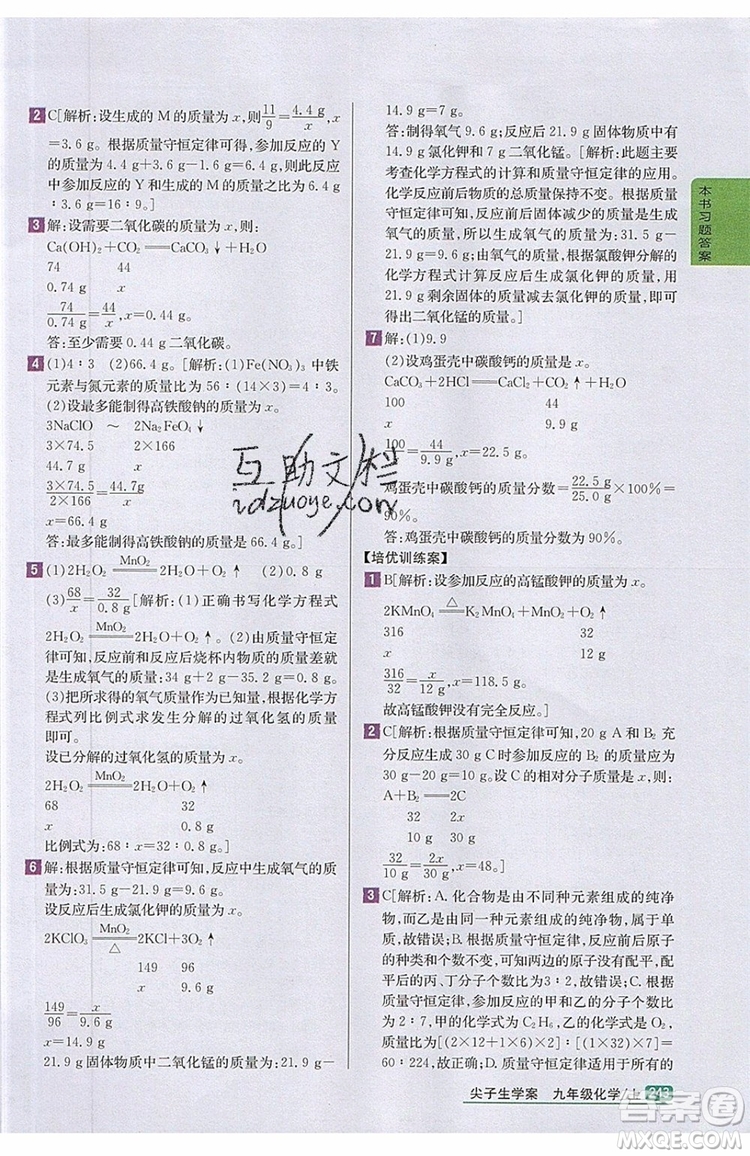 2 C[解析:设生成的 M 的质量为 x,则11/9=4.4 g/x,x
=3.6 g。根据质量守恒定律可得,参加反应的 Y
的质量为 4.4 g+3.6 g-1.6 g=6.4 g。故此反应
中参加反应的 Y 和生成的 M 的质量之比为 6.4 g
:3.6 g=16:9。]
3 解:设需要二氧化碳的质量为 x,则:
Ca(OH)₂+CO₂══CaCO₃↓+H₂O
74 44
0.74 g x
74/0.74 g=44/x,x=0.44 g
答:至少需要 0.44 g 二氧化碳。
4 (1)4:3 (2)66.4 g。[解析:(1)Fe(NO₃)₃ 中铁
元素与氮元素的质量比为 56:(14×3)=4:3。
(2)设最多能制得高铁酸钠的质量为 x。
3NaClO ~ 2Na₂FeO₄
3×74.5 2×166
44.7 g x
3×74.5/2×166=44.7g/x
x=66.4 g
答:最多能制得高铁酸钠的质量为 66.4 g。]
5 (1)2H₂O₂ MnO₂══ 2H₂O+O₂↑ (2)0.8 g
(3)68/x=32/0.8 g[解析:(1)正确书写化学方程式
2H₂O₂ MnO₂══ 2H₂O+O₂↑。(2)由质量守恒定
律可知,反应前与反应后烧杯内物质的质量差就
是生成氧气的质量:34 g+2 g-35.2 g=0.8 g。
(3)把所求得的氧气质量作为已知量,根据化学方
程式列比例式求发生分解的过氧化氢的质量
即可。
设已分解的过氧化氢的质量为 x。
2H₂O₂ MnO₂══ 2H₂O+O₂↑
68 32
x 0.8 g
比例式为:68:x=32:0.8 g]
6 解:根据质量守恒定律可知,反应中生成氧气的质
量为:31.5 g-21.9 g=9.6 g。
设反应后生成氯化钾的质量为 x。
2KClO₃ MnO₂══△ 2KCl+3O₂↑
149 96
x 9.6 g
149/96=x/9.6 g
x=14.9 g
21.9 g 固体物质中二氧化锰的质量为:21.9 g-
14.9 g=7 g
答:制得氧气 9.6 g;反应后 21.9 g 固体物质中有
14.9 g 氯化钾和 7 g 二氧化锰。[解析:此题主要
考查化学方程式的计算和质量守恒定律的应用。
化学反应前后物质的总质量保持不变。根据质量
守恒定律可知,反应后固体减少的质量是生成
氧气的质量,所以生成氧气的质量为:31.5 g-
21.9 g=9.6 g;根据氧气的质量,根据氯酸钾分解的
化学方程式计算反应后生成氯化钾的质量,用
21.9 g 剩余固体的质量减去氯化钾的质量,即可
得出二氧化锰的质量。]
7 解:(1)9.9
(2)设鸡蛋壳中碳酸钙的质量是 x。
CaCO₃+2HCl══CaCl₂+H₂O+CO₂↑
100 44
x 9.9 g
100/x=44/9.9 g,x=22.5 g。
鸡蛋壳中碳酸钙的质量分数=22.5 g/25.0 g×100%=
90%。
答:鸡蛋壳中碳酸钙的质量分数为 90%。
【培优训练案】
1 B[解析:设参加反应的高锰酸钾的质量为 x。
2KMnO₄ △══ K₂MnO₄+MnO₂+O₂↑
316 32
x 12 g
316/x=32/12 g,x=118.5 g。
故高锰酸钾没有完全反应。]
2 C[解析:根据质量守恒定律可知,20 g A 和 B₂ 充
分反应生成 30 g C 时参加反应的 B₂ 的质量为
30 g-20 g=10 g。设 C 的相对分子质量为 x。
A+B₂══2C
32 2x
10 g 30 g
32/10 g=2x/30 g,x=48。]
3 C[解析:A. 化合物是由不同种元素组成的纯净
物,而乙是由一种元素组成的纯净物,属于单质,不
是化合物,故错误;B. 根据质量守恒定律,反应前后原子
的种类和个数不变,可知两边的原子没有配平,配
平后的丙、丁分子个数比为3:2,故错误;C. 根据
质量守恒定律,参加反应的甲和乙的分子个数比
为 2:7,甲的化学式为 C₂H₆,乙的化学式为 O₂,
所以参加反应的甲和乙的质量比=(30×2):(32×7)=
60:224,故正确;D. 质量守恒定律适用于所有的
本书习题答案
互助文档
hdzuoye.com
尖子生学案 九年级化学/上 243
答案圈
MXQE.COM